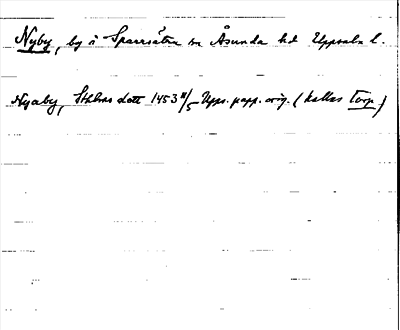 Nyby, by i Sparrsätra sn Åsunda hd Uppsala l.
Nyaby, Sthlms dott 1453 11/5 Upps. papp. orig. (kallas torp)